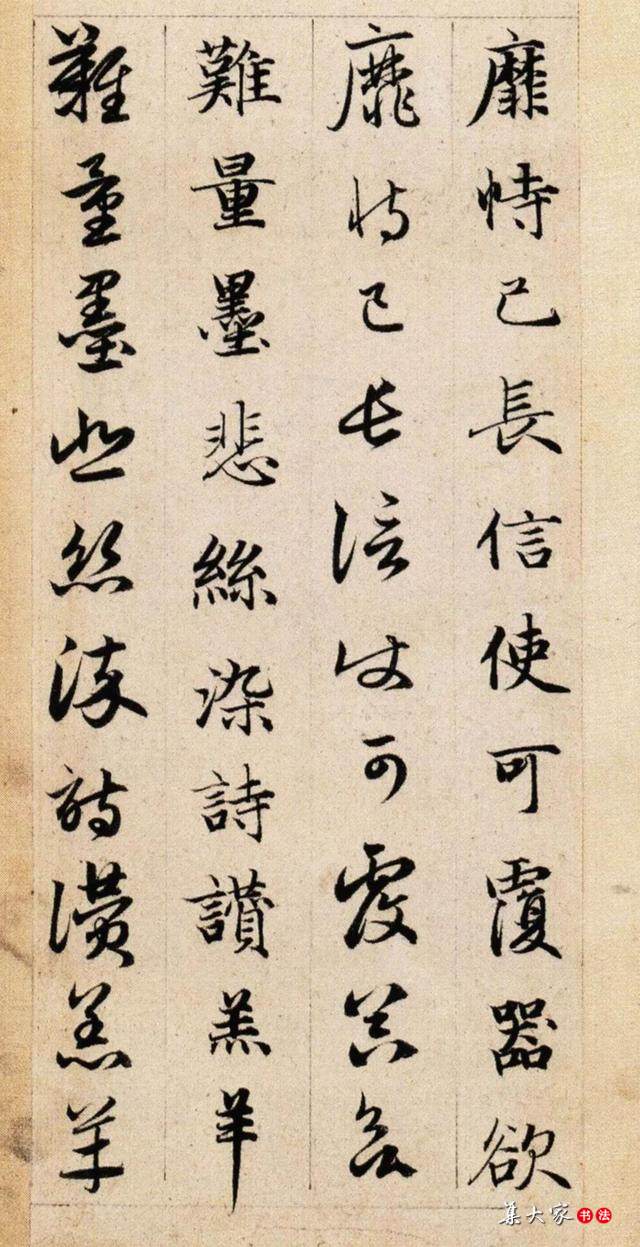 靡恃己長信使可覆器欲
靡恃己長信使可覆器欲
難量墨悲絲染詩讃羔羊
難量墨悲絲染詩讃羔羊
集大家书法